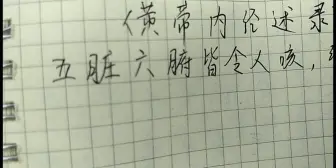 《黄帝内经述录
五脏六腑皆令人咳,